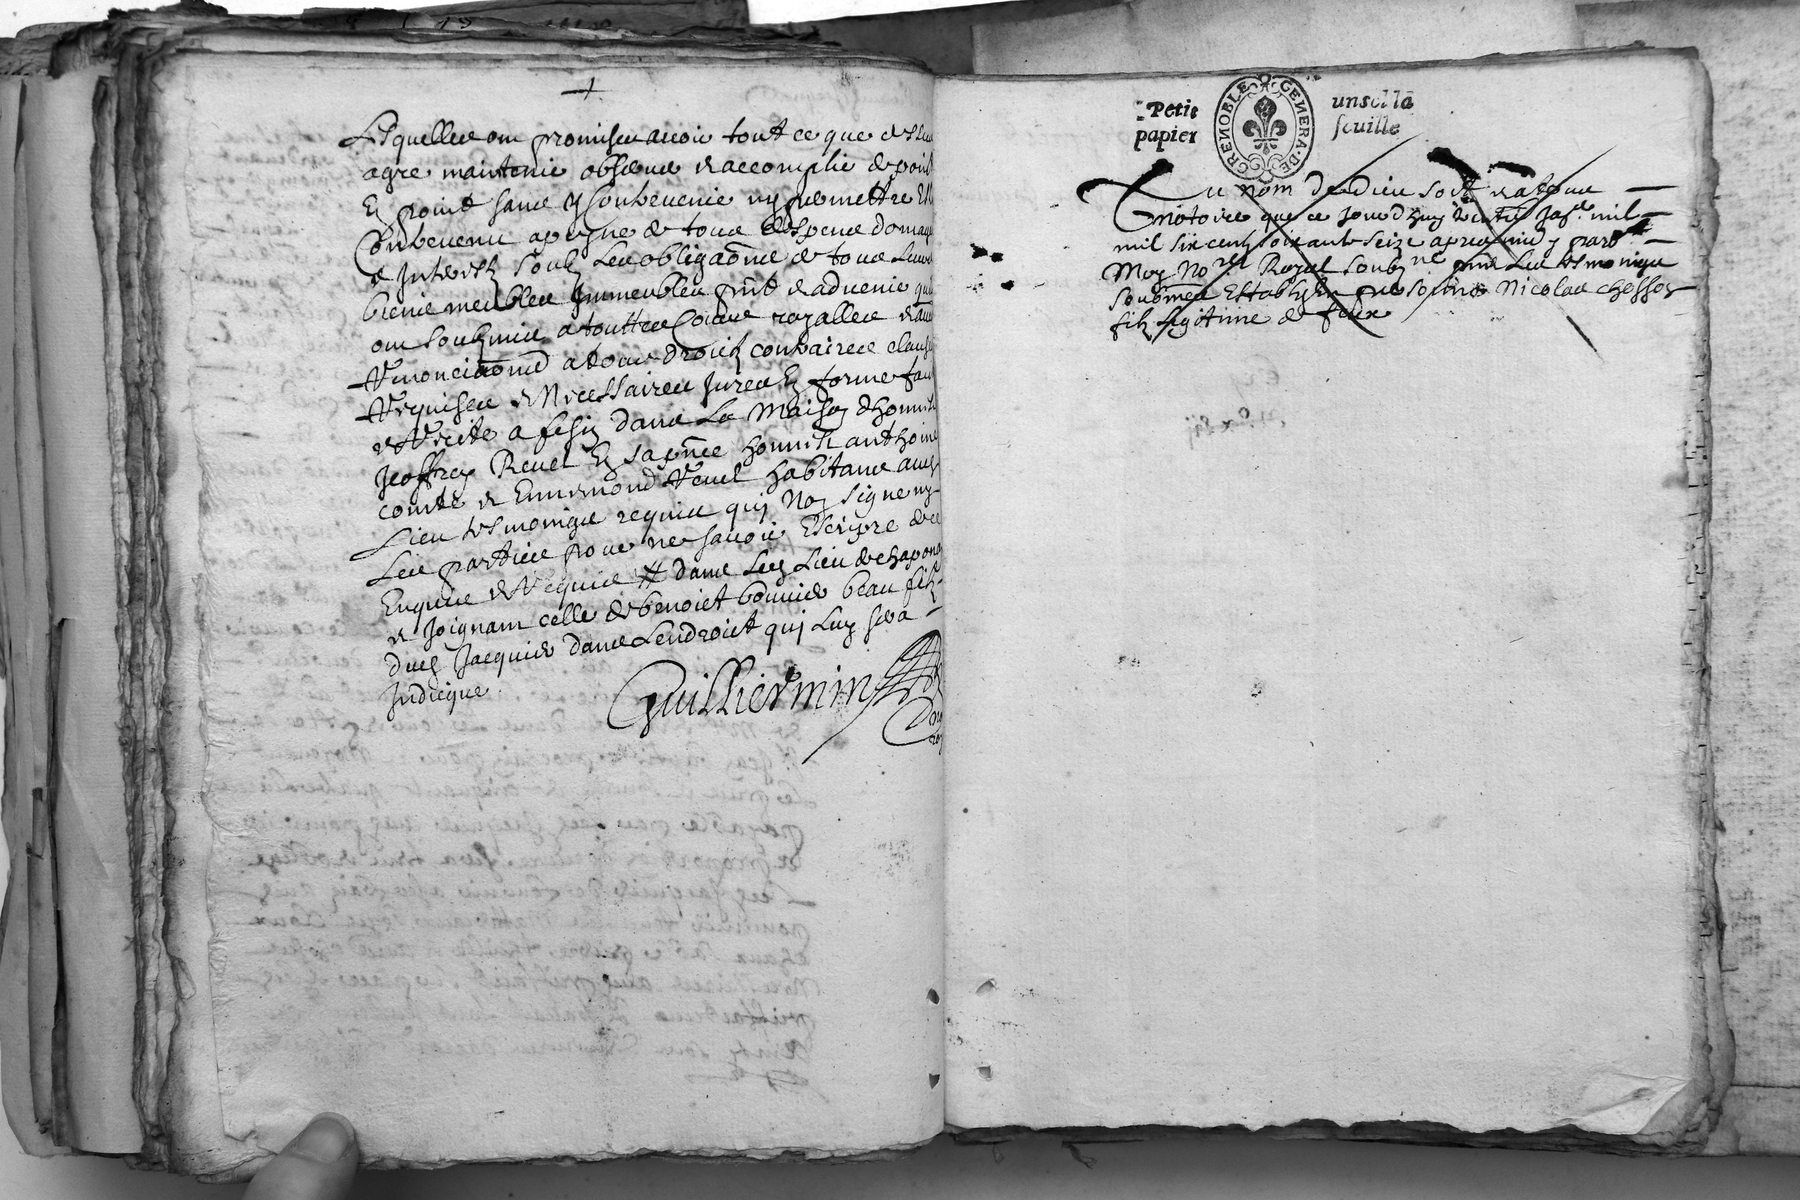 Lesquelles ont promises avoir tout ce que dessus
agre maintenir observer et accomplir de point
En point sans y contrevenir ny permettre Estre
Contrevenu a peyne de tous despens domage
et Interestz soubz Les obligaōns de tous Leurs
biens meubles Immeubles pnt et advenir qu
ont soubzmis a touttes Cours royalles et au
Renonciaōnt a tous droictz contraires clauses
Requises et Necessaires Jures En forme faict
et Recite a dans La Maison dhonneste
Jeoffrey Revel En sa pnce honneste anthoine
comte et Ennemond Revel habitans aud
Lieu tesmoings requis qui Non signe ny
Les parties pour ne savoir Escripre de ce
Enquis et Requis # dans Led Lieu de chapon
et Joignant celle de benoiet bonnier beau filz
dud Jacquier dans Lendroict qui Luy sera
Indicque
Guilliermin
Petit papier
GRENOBLE GENERA. DE
un sol la feuille
Au nom de dieu soit et a tous
notoire que ce Jourdhuy mil
mil six cens soixante seize apres midy pard
Moy No.re Royal soubz.ne pnt Les tesmoings
soubznes Establyen personne Nicolas chessoz
filz Legitime de feux